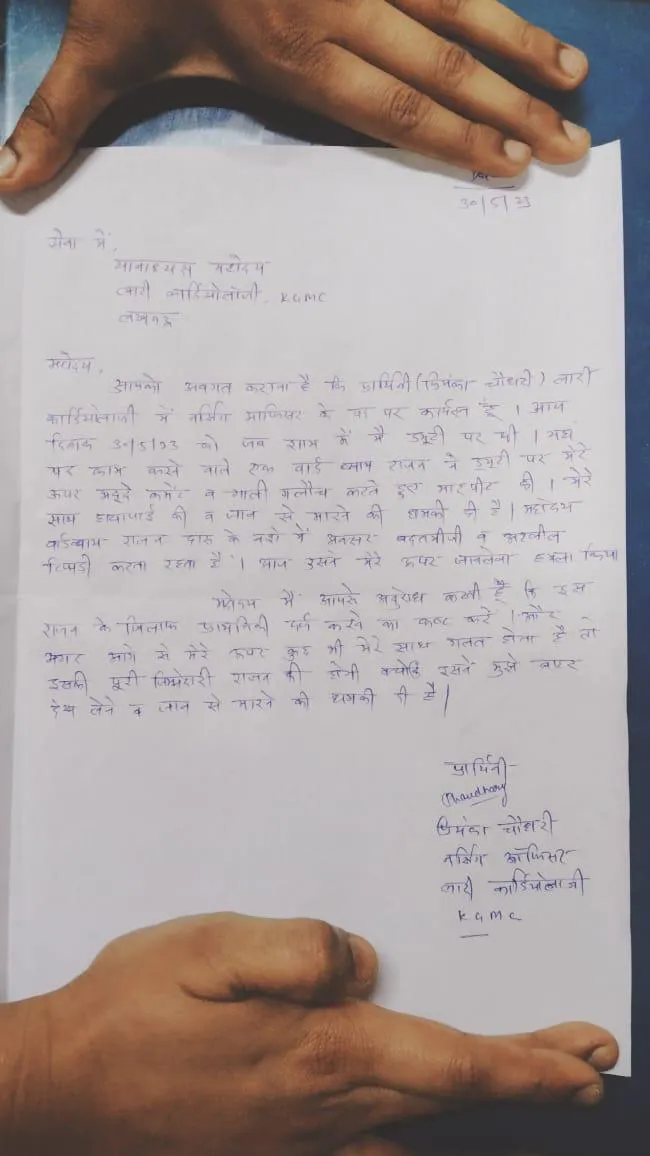 30/5/23
सेवा में,
महोदय
लारी कार्डियोलॉजी, KGMC
लखनऊ
महोदय,
आपको अवगत कराना है कि प्रार्थिनी (प्रियंका चौधरी) लारी
कार्डियोलाजी में नर्सिंग आफिसर के पद पर कार्यरत हूँ । आज
दिनांक 30/5/23 को जब शाम में मै ड्यूटी पर थी । यहाँ
पर काम करने वाले एक वार्ड ब्वाय राजन ने ड्यूटी पर मेरे
ऊपर अभद्र कमेंट व गाली गलौच करते हुए मारपीट की । मेरे
साथ हाथापाई की व जान से मारने की धमकी दी है । महोदय
वार्डब्वाय राजन दारू के नशे में अक्सर बदतमीजी व अश्लील
टिप्पडी करता रहता है । आज उसने मेरे ऊपर जानलेवा हमला किया
महोदय मैं आपसे अनुरोध करती हूँ कि इस
राजन के खिलाफ प्राथमिकी दर्ज करने का कष्ट करें । और
अगर आगे से मेरे ऊपर कुछ भी मेरे साथ गलत होता है तो
इसकी पूरी जिम्मेदारी राजन की होगी क्योंकि इसने मुझे बाहर
देख लेने व जान से मारने की धमकी दी है |
प्रार्थिनी
Chaudhary
प्रियंका चौधरी
नर्सिंग ऑफिसर
लारी कार्डियोलाजी
KGMC